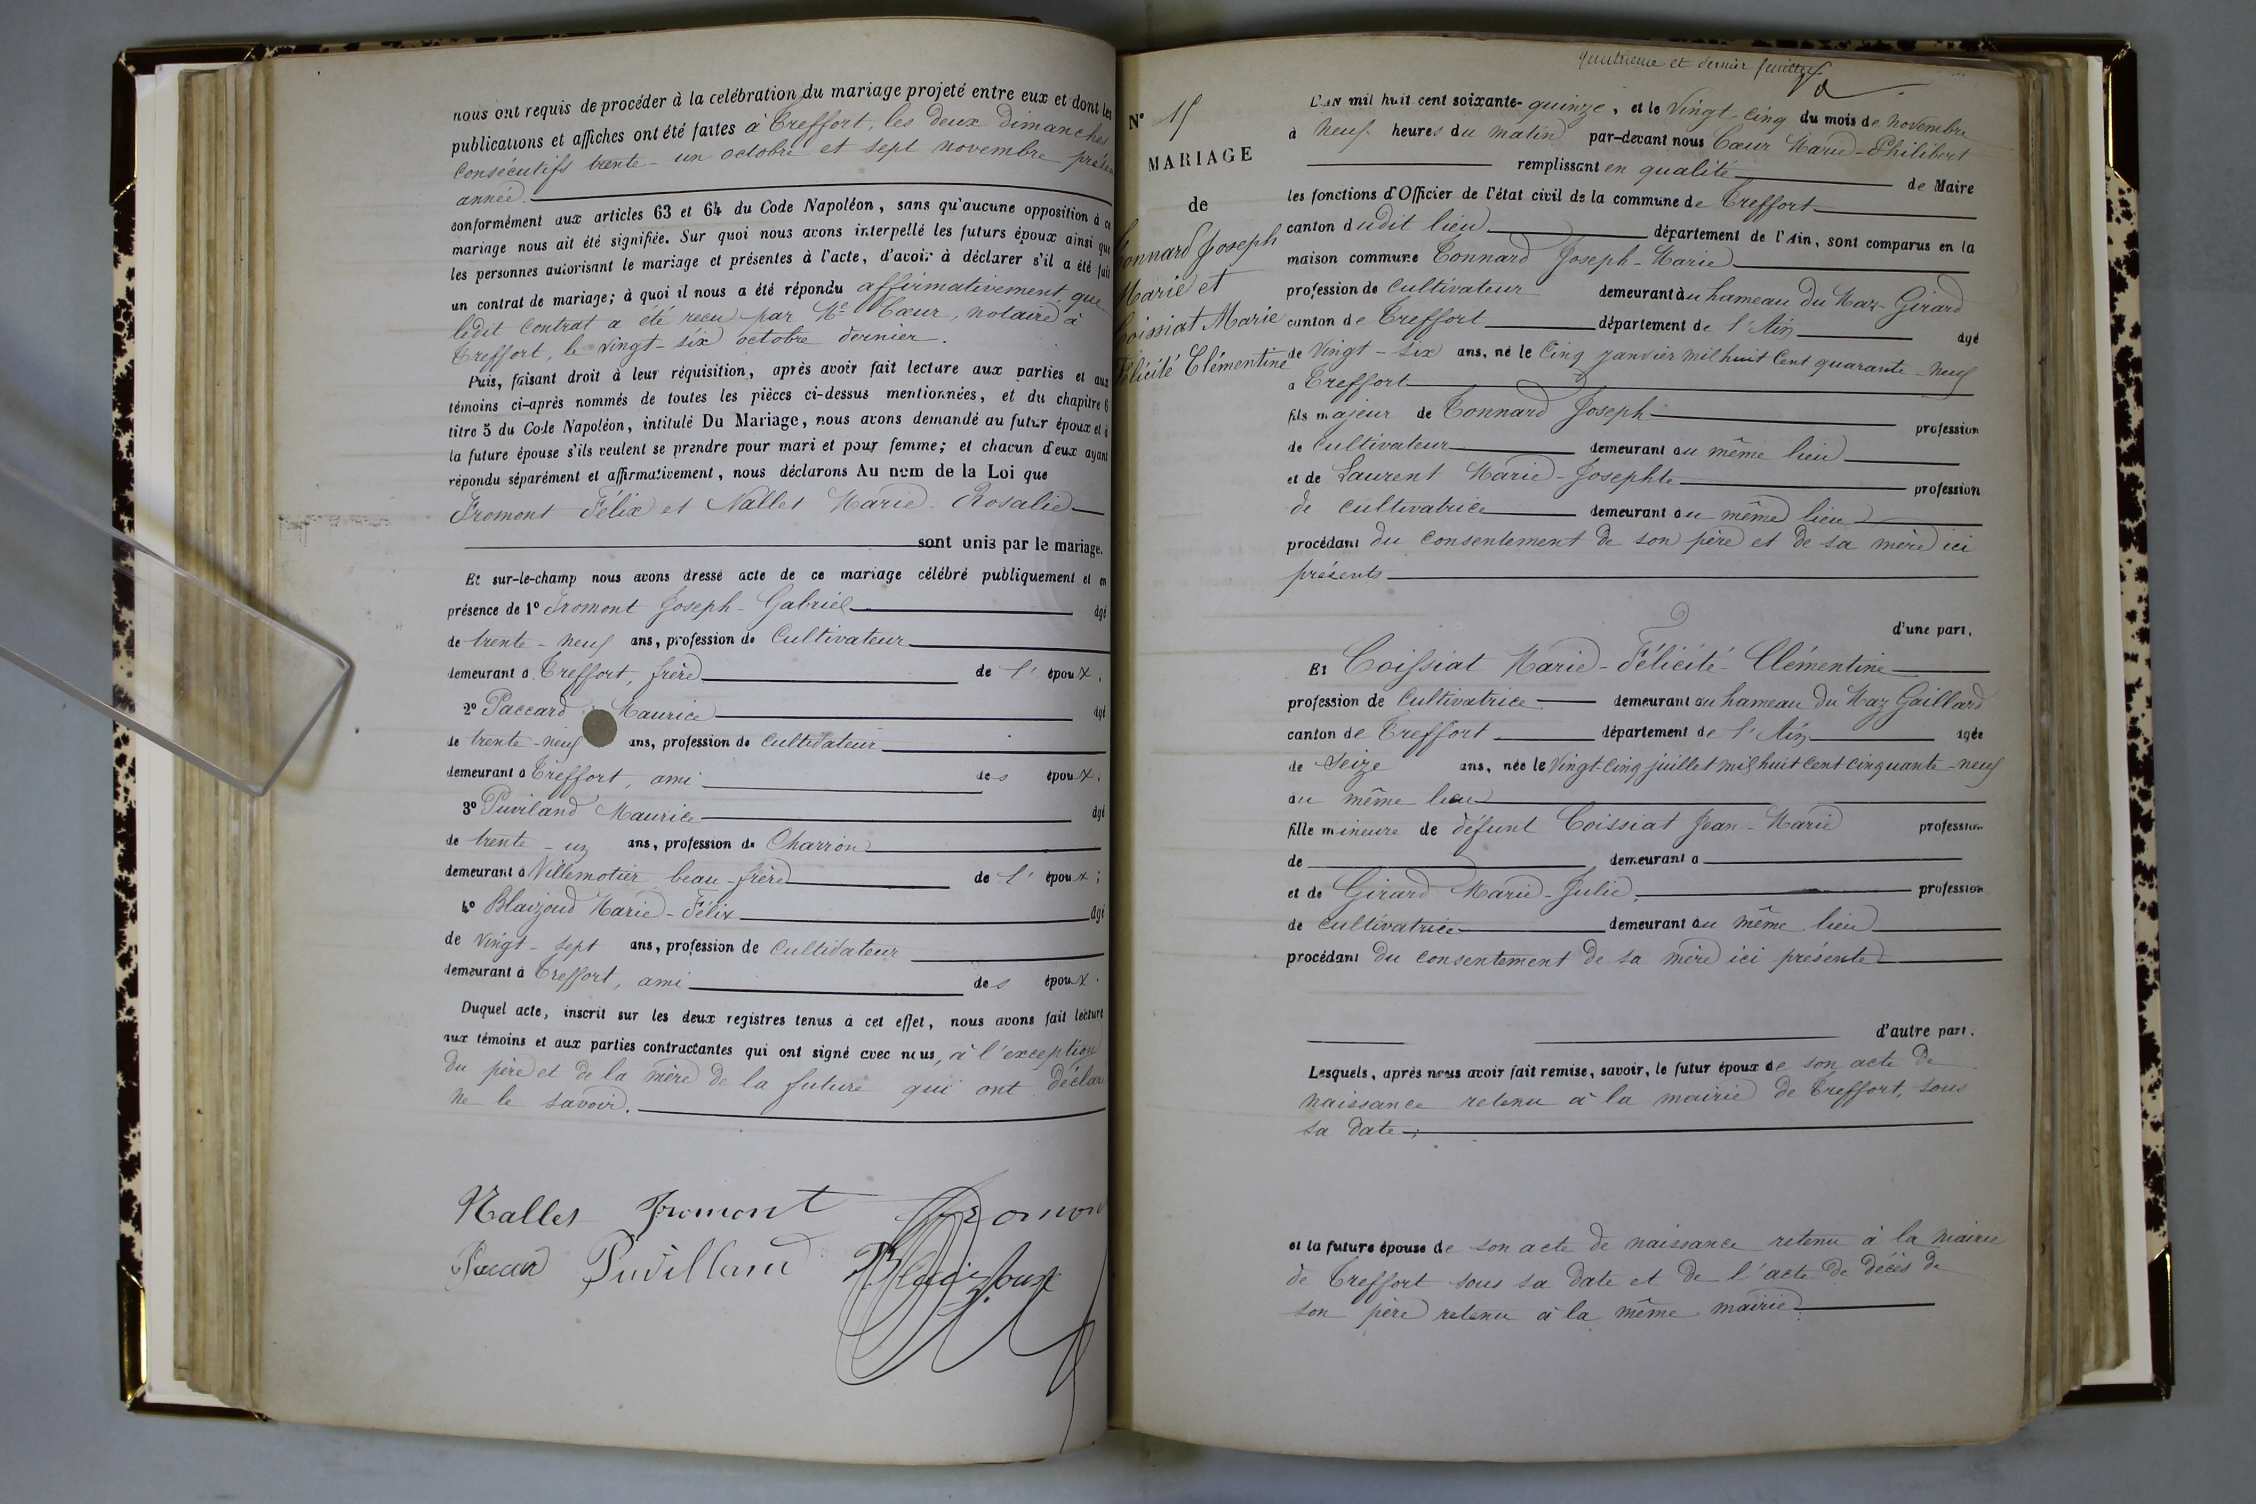 nous ont requis de procéder à la celébration du mariage projeté entre eux et dont les
publications et affiches ont été faites à Treffort, les deux Dimanches
consécutifs trente-un octobre et sept novembre
année.
conformément aux articles 63 et 64 du Code Napoléon, sans qu'aucune opposition à ce
mariage nous ait été signifiée. Sur quoi nous avons interpellé les futurs époux ainsi que
les personnes autorisant le mariage et présentes à l'acte, d'avoir à déclarer s'il a été fait
un contrat de mariage; à quoi il nous a été répondu affirmativement, que
ledit contrat a été reçu par Me Cœur, notaire à
Treffort, le vingt-six octobre dernier.
Puis, faisant droit à leur réquisition, après avoir fait lecture aux parties et aux
témoins ci-après nommés de toutes les pièces ci-dessus mentionnées, et du chapitre 6
titre 5 du Code Napoléon, intitulé Du Mariage, nous avons demandé au futur époux et à
la future épouse s'ils veulent se prendre pour mari et pour femme; et chacun d'eux ayant
répondu séparément et affirmativement, nous déclarons Au nom de la Loi que
Fromont Félix et Nallet Marie-Rosalie
sont unis par le mariage.
Et sur-le-champ nous avons dressé acte de ce mariage célébré publiquement et en
présence de 1º Fromont Joseph-Gabriel âgé
de trente-neuf ans, profession de Cultivateur
demeurant à Treffort, frère de l' époux;
2º Paccard Maurice âgé
de trente-neuf ans, profession de cultivateur
demeurant à Treffort, ami des époux;
3º Puviland Maurice âgé
de trente-un ans, profession de Charron
demeurant à Villemotier beau-frère de l' époux;
4º Blaizoud Marie-Félix âgé
de vingt-sept ans, profession de cultivateur
demeurant à Treffort, ami des époux.
Duquel acte, inscrit sur les deux registres tenus à cet effet, nous avons fait lecture
aux témoins et aux parties contractantes qui ont signé avec nous, à l'exception
du père et de la mère de la future qui ont déclaré
ne le savoir.
Nallet Fromont Fromont
Puvilland
quatrième et dernier feuillet
Nº 15
MARIAGE
de
Connard Joseph
Marie et
Coissiat Marie
Félicité Clémentine
L'AN mil huit cent soixante-quinze, et le vingt-cinq du mois de novembre
à neuf heures du matin par-devant nous Cœur Marie-Philibert
remplissant en qualité de Maire
les fonctions d'Officier de l'état civil de la commune de Treffort
canton dudit lieu département de l'Ain, sont comparus en la
maison commune Connard Joseph-Marie
profession de Cultivateur demeurant au hameau du Maz-Girard
canton de Treffort département de l'Ain âgé
de vingt-six ans, né le cinq janvier mil huit cent quarante-neuf
à Treffort
fils majeur de Connard Joseph profession
de cultivateur demeurant au même lieu
et de Laurent Marie-Josephte profession
de cultivatrice demeurant au même lieu
procédant du consentement de son père et de sa mère ici
présents
d'une part,
Et Coissiat Marie-Félicité-Clémentine
profession de Cultivatrice demeurant au hameau du Maz Gaillard
canton de Treffort département de l'Ain âgée
de seize ans, née le vingt-cinq juillet mil huit cent cinquante-neuf
au même lieu
fille mineure de défunt Coissiat Jean-Marie profession
de demeurant à
et de Girard Marie-Julie, profession
de cultivatrice demeurant au même lieu
procédant du consentement de sa mère ici présente
d'autre part.
Lesquels, après nous avoir fait remise, savoir, le futur époux de son acte de
naissance retenu à la mairie de Treffort, sous
sa date;
et la future épouse de son acte de naissance retenu à la mairie
de Treffort sous sa date et de l'acte de décès de
son père retenu à la même mairie.